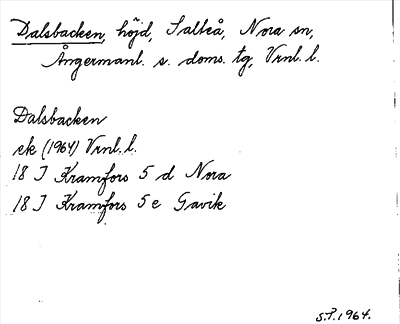 Dalsbacken, höjd, Salteå, Nora sn,
Ångermanl. s. doms. tg, Vrnl. l.
Dalsbacken
ek (1964) Vrnl. l.
18 I Kramfors 5 d Nora
18 I Kramfors 5 e Gavik
S.P. 1964.